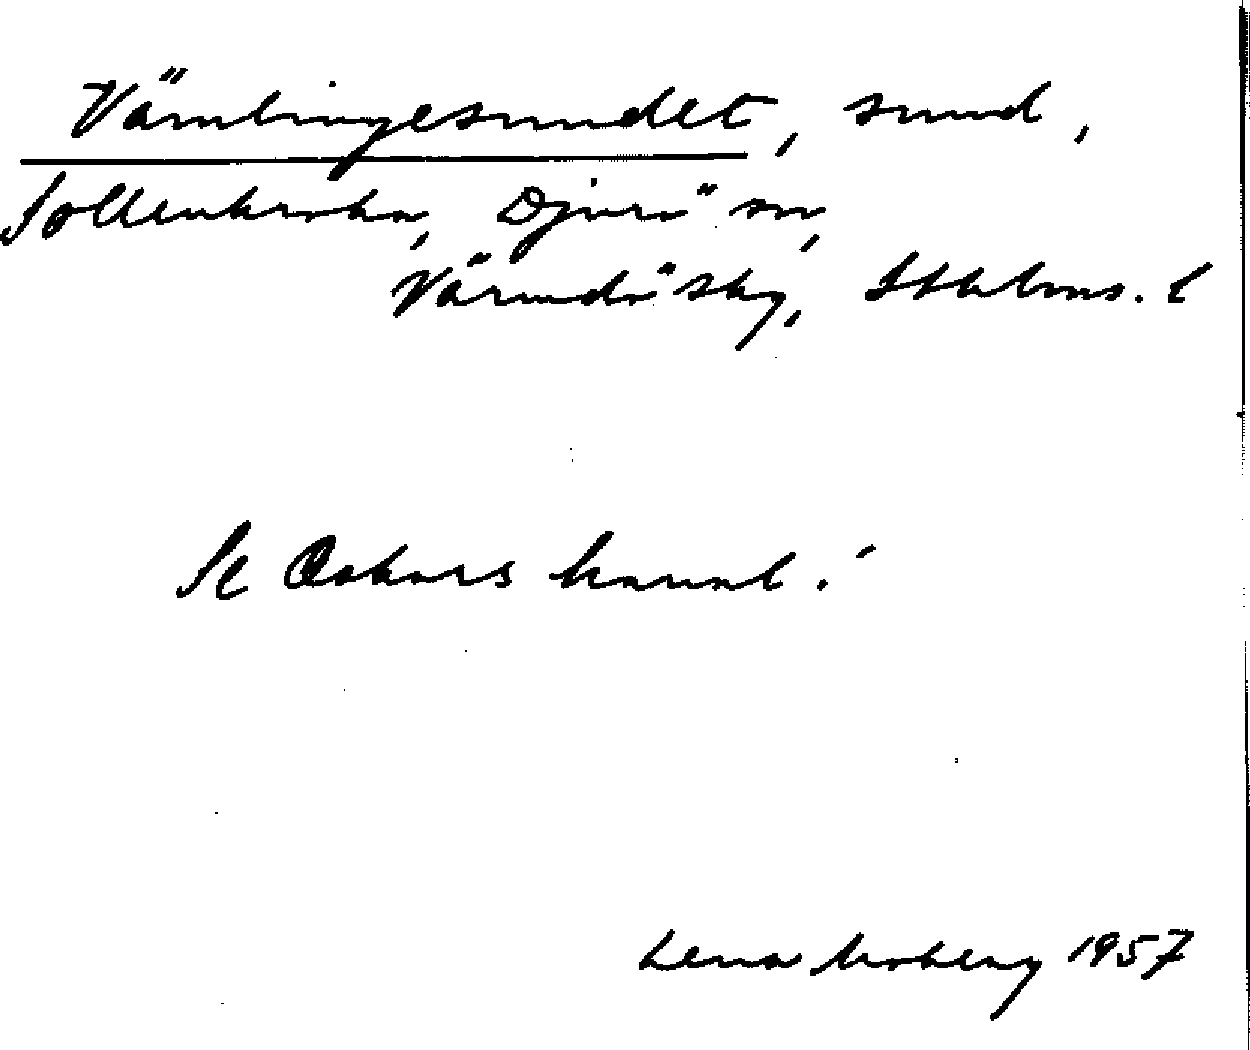 Vämlingesundet, sund,
Sollenkroka, Djurö sn,
Värmdö skg, Sthlms. l
Se Oskars kanal.
Lena Moberg 1957